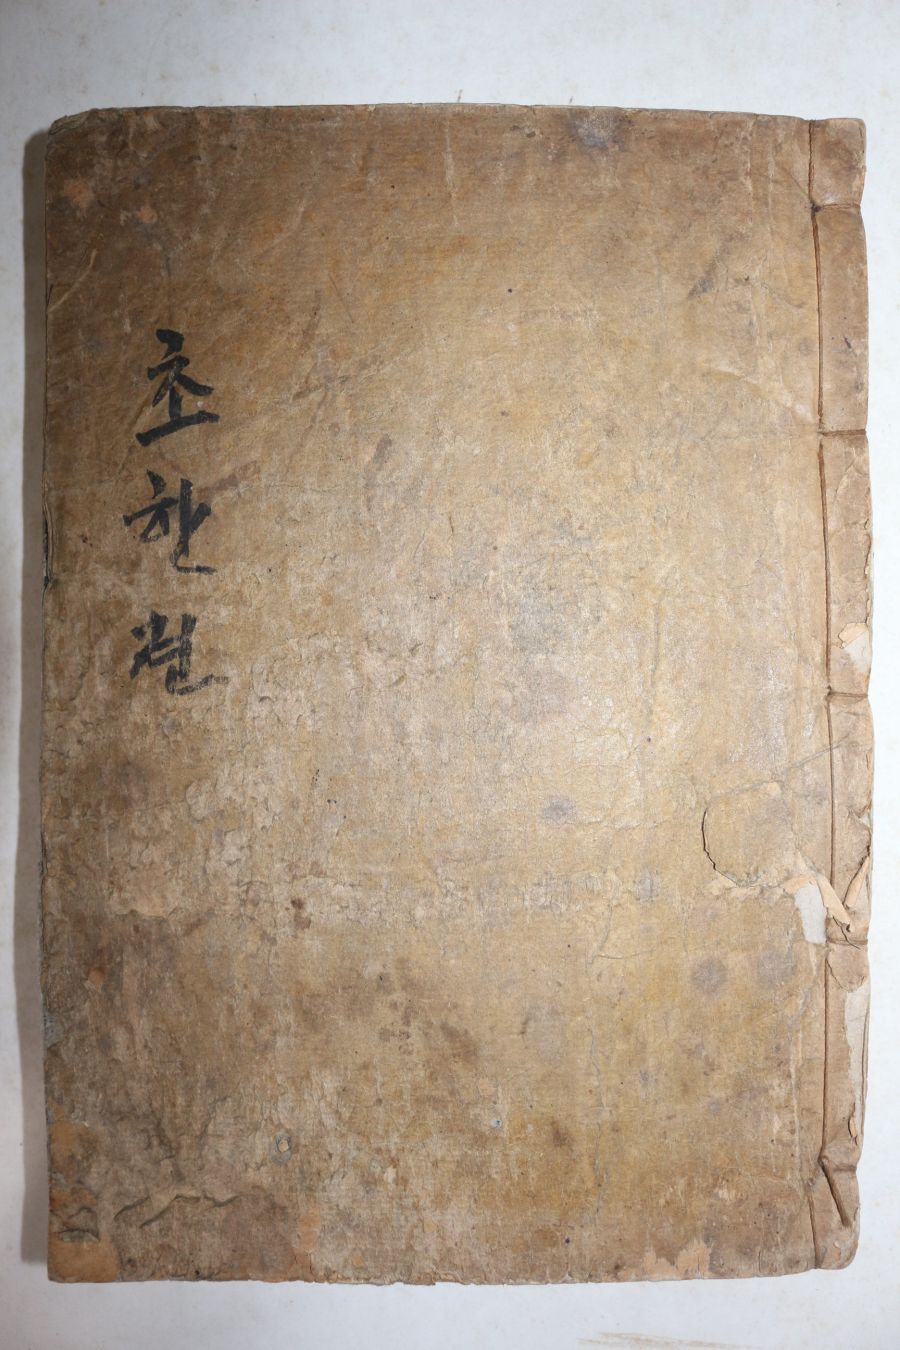 초한젼